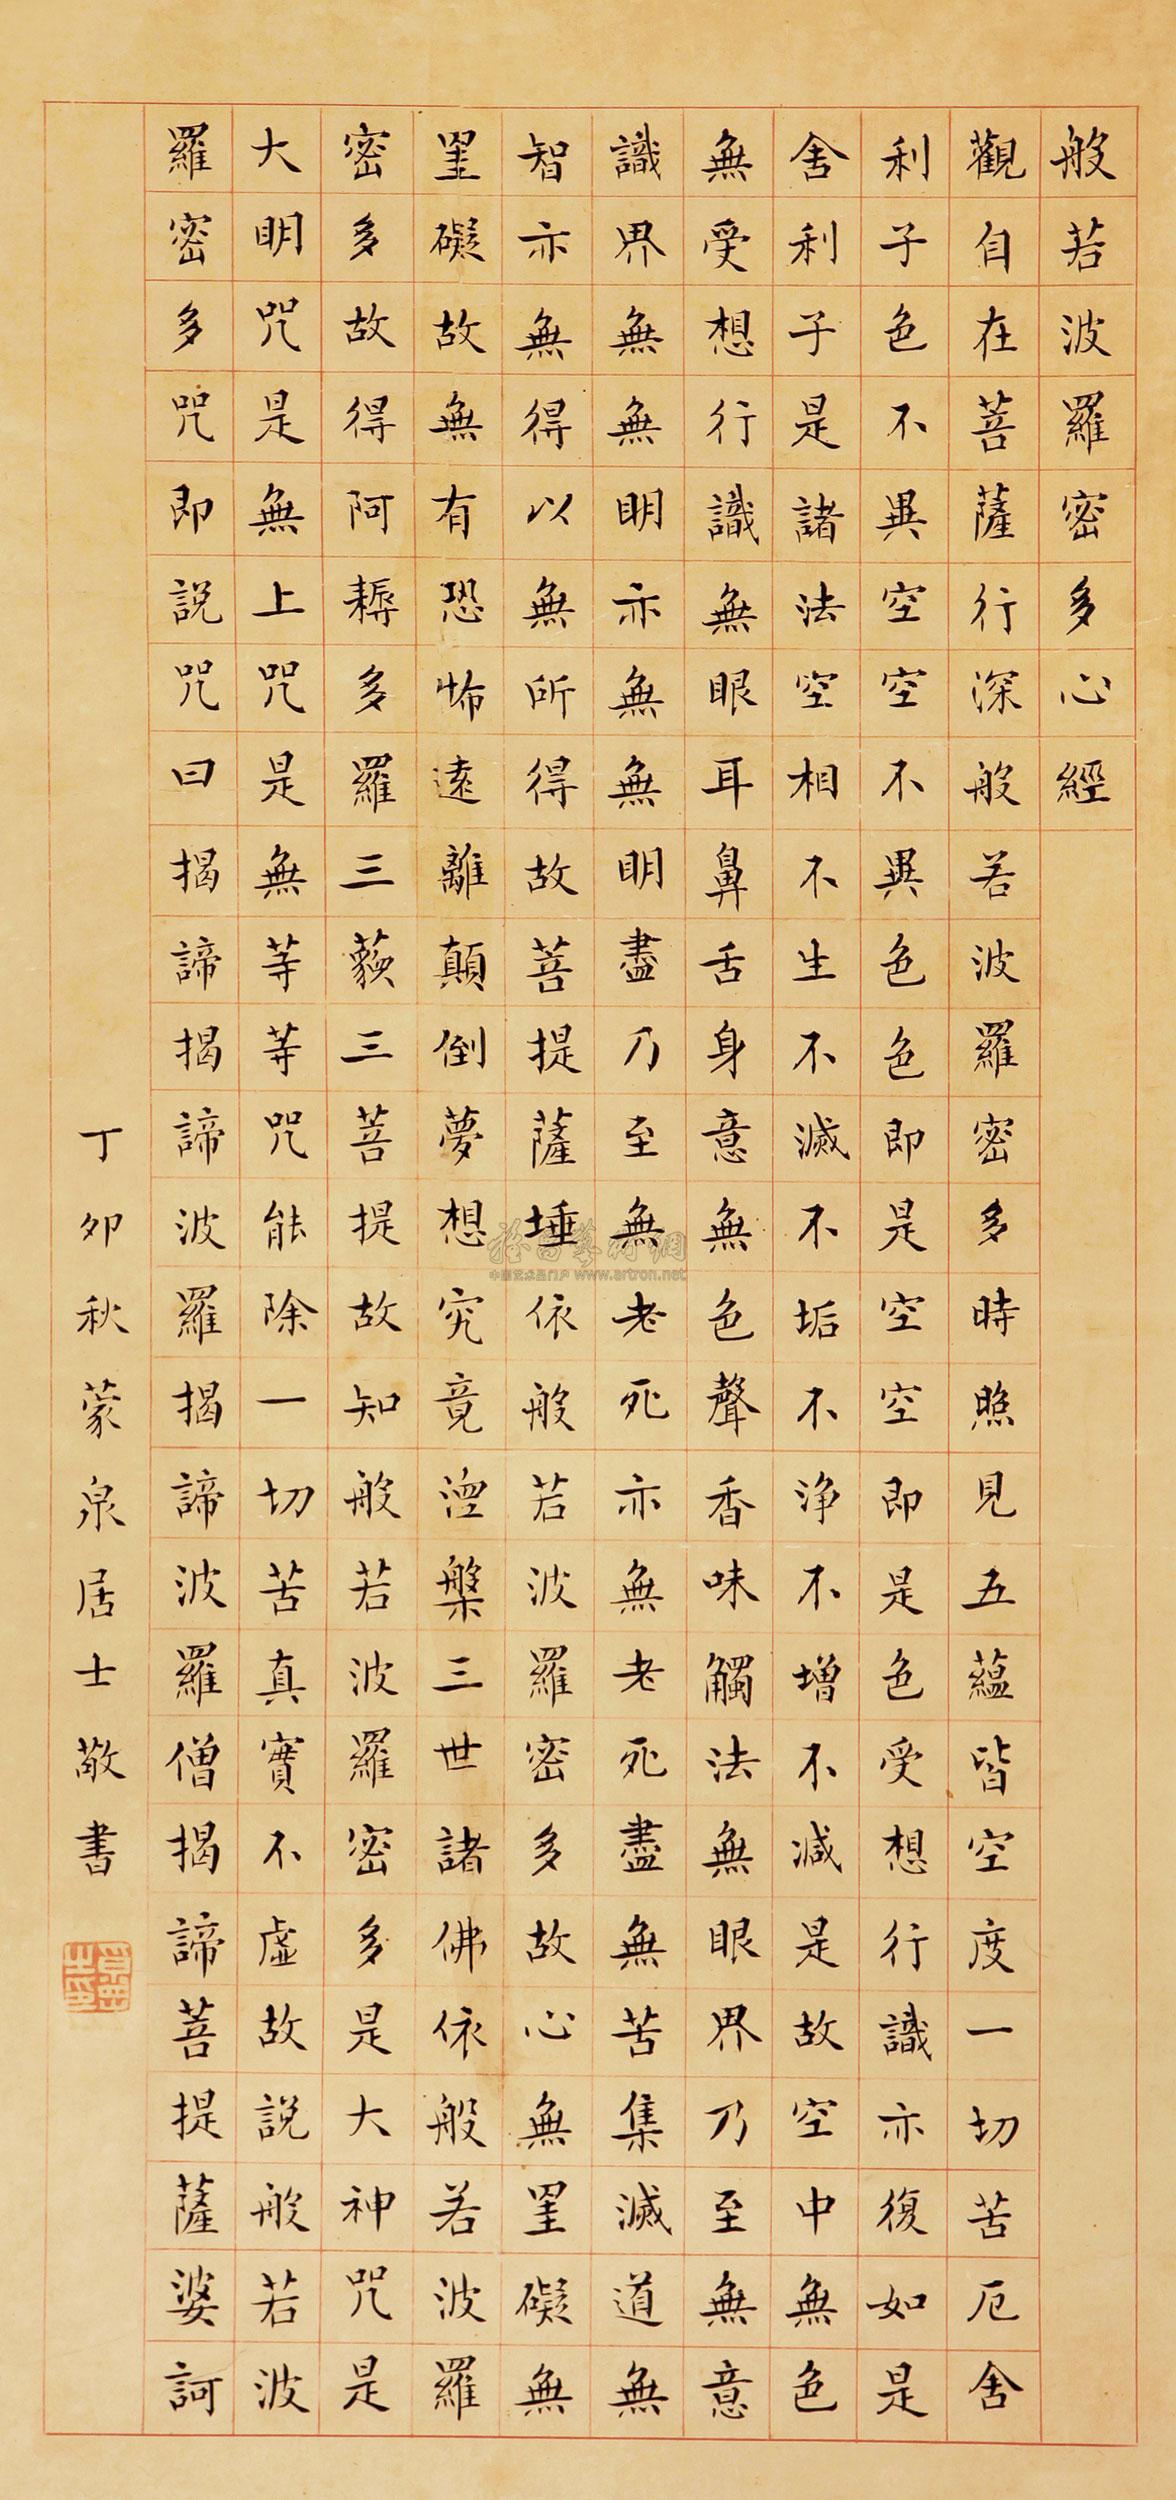 般若波羅密多心經
觀自在菩薩行深般若波羅密多時照見五蘊皆空度一切苦厄舍
利子色不異空空不異色色即是空空即是色受想行識亦復如是
舍利子是諸法空相不生不滅不垢不淨不增不減是故空中無色
無受想行識無眼耳鼻舌身意無色聲香味觸法無眼界乃至無意
識界無無明亦無無明盡乃至無老死亦無老死盡無苦集滅道無
智亦無得以無所得故菩提薩埵依般若波羅密多故心無罣礙無
罣礙故無有恐怖遠離顛倒夢想究竟涅槃三世諸佛依般若波羅
密多故得阿耨多羅三藐三菩提故知般若波羅密多是大神咒是
大明咒是無上咒是無等等咒能除一切苦真實不虛故說般若波
羅密多咒即說咒曰揭諦揭諦波羅揭諦波羅僧揭諦菩提薩婆訶
丁卯秋蒙泉居士敬書
雅昌藝術網
中国艺术品门户 www.artron.net